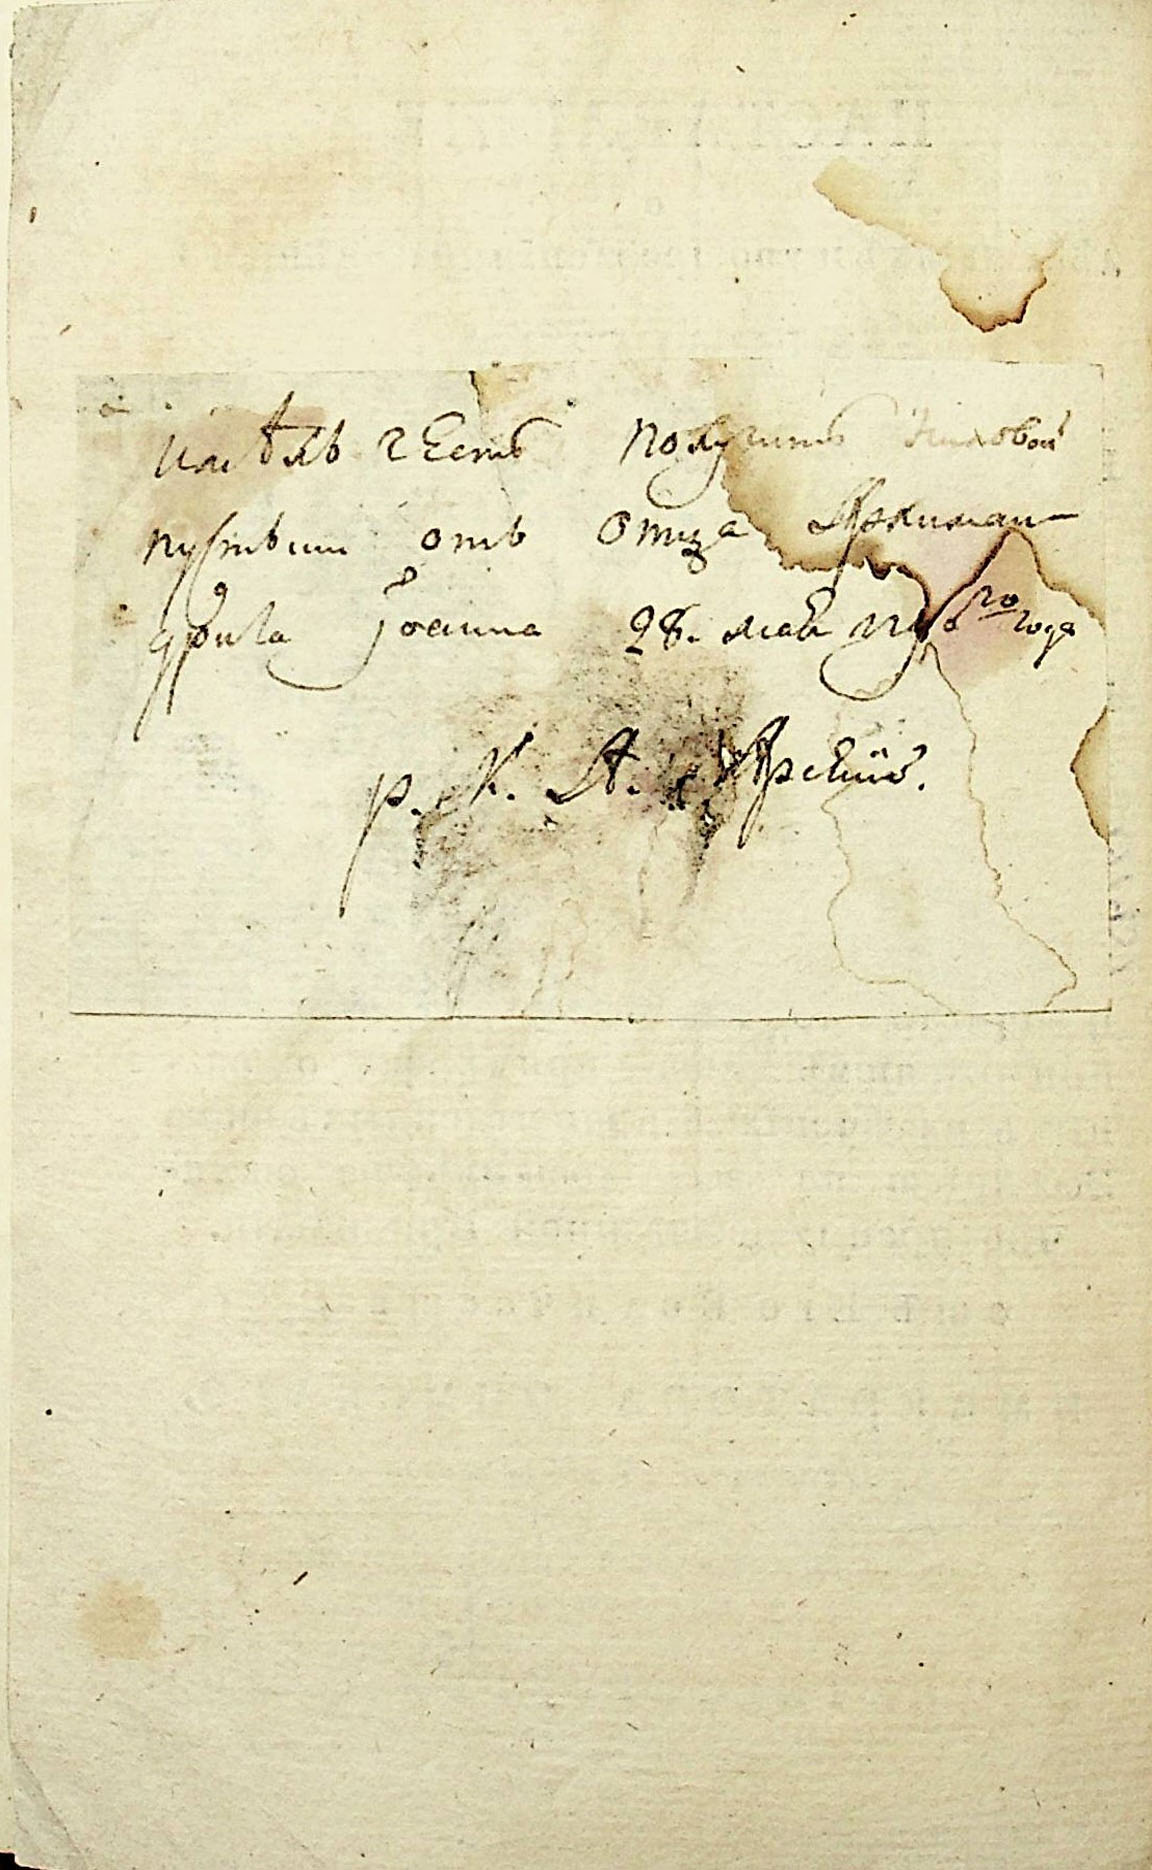 имѣлъ честь получить Ниловой
пустыни отъ отца Архиман-
дрита Іоанна 28. маія го года
р. К. А. Арсеній.